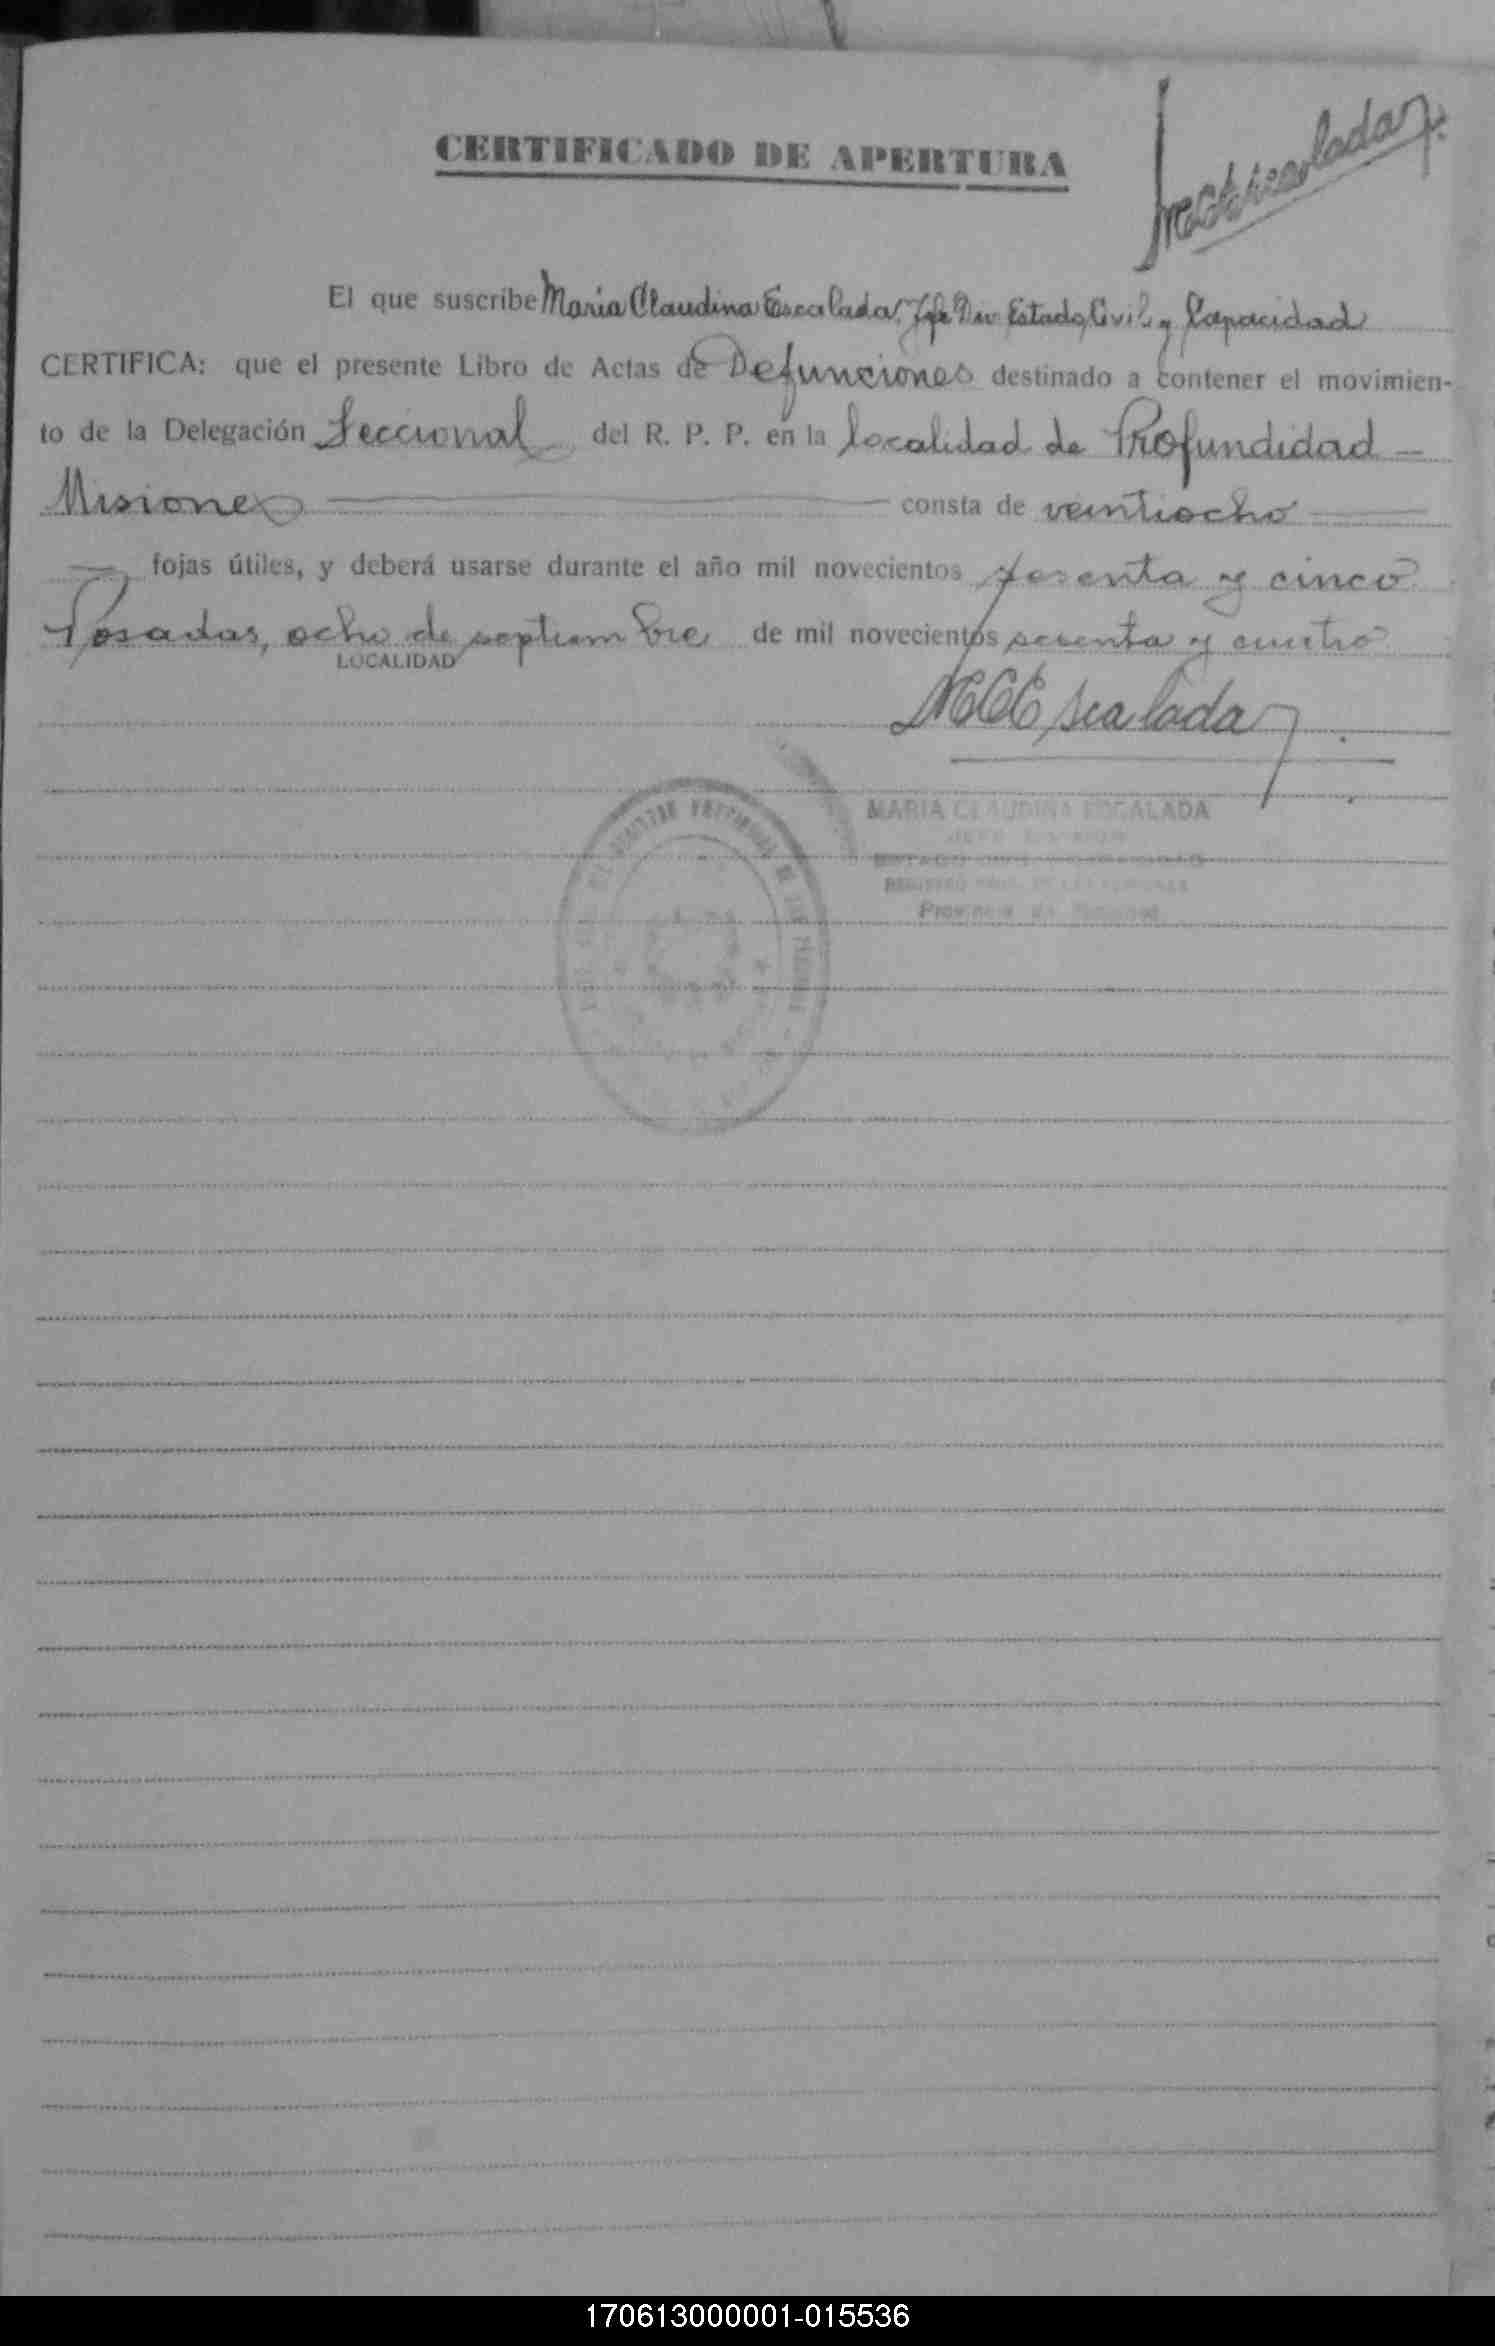 CERTIFICADO DE APERTURA
El que suscribe Maria Claudina Escalada, Jefe Div. Estado Civil y Capacidad
CERTIFICA: que el presente Libro de Actas de Defunciones destinado a contener el movimien-
to de la Delegación Seccional del R. P. P. en la localidad de Profundidad —
Misiones — consta de veintiocho —
— fojas útiles, y deberá usarse durante el año mil novecientos sesenta y cinco
Posadas, ocho de septiembre de mil novecientos sesenta y cuatro
LOCALIDAD
MCEscalada
MARIA CLAUDINA ESCALADA
JEFE DIVISION
ESTADO CIVIL Y CAPACIDAD
REGISTRO PROV. DE LAS PERSONAS
Provincia de Misiones
170613000001-015536